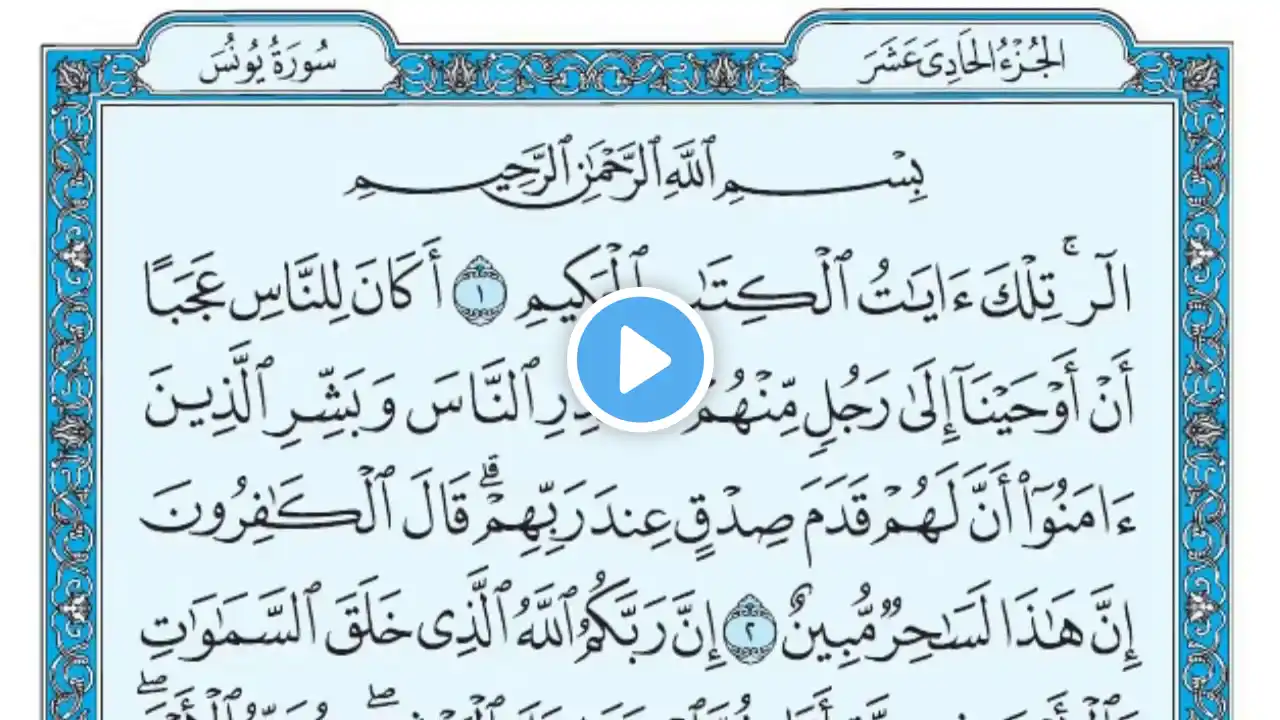 الجُزْءُ الحَادِى عَشَرَ
سُورَةُ يُونُسَ
بِسْمِ ٱللَّهِ ٱلرَّحْمَٰنِ ٱلرَّحِيمِ
الٓرۚ تِلْكَ ءَايَٰتُ ٱلْكِتَٰبِ ٱلْحَكِيمِ ١ أَكَانَ لِلنَّاسِ عَجَبًا
أَنْ أَوْحَيْنَآ إِلَىٰ رَجُلٍ مِّنْهُمْ ٱلنَّاسَ وَبَشِّرِ ٱلَّذِينَ
ءَامَنُوٓا۟ أَنَّ لَهُمْ قَدَمَ صِدْقٍ عِندَ رَبِّهِمْۗ قَالَ ٱلْكَٰفِرُونَ
إِنَّ هَٰذَا لَسَٰحِرٌ مُّبِينٌ ٢ إِنَّ رَبَّكُمُ ٱللَّهُ ٱلَّذِى خَلَقَ ٱلسَّمَٰوَٰتِ